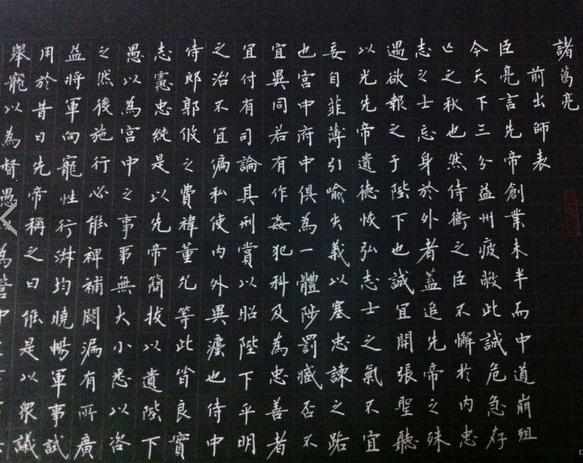 諸葛亮
前出師表
臣亮言先帝創業未半而中道崩殂
今天下三分益州疲敝此誠危急存
亡之秋也然侍衛之臣不懈於內忠
志之士忘身於外者蓋追先帝之殊
遇欲報之于陛下也誠宜開張聖聽
以光先帝遺德恢弘志士之氣不宜
妄自菲薄引喻失義以塞忠諫之路
也宮中府中俱為一體陟罰臧否不
宜異同若有作姦犯科及為忠善者
宜付有司論其刑賞以昭陛下平明
之治不宜偏私使內外異灋也侍中
侍郎郭攸之費禕董允等此皆良實
志慮忠純是以先帝簡拔以遺陛下
愚以為宮中之事事無大小悉以咨
之然後施行必能裨補闕漏有所廣
益將軍向寵性行淑均曉暢軍事試
用於昔日先帝稱之曰能是以眾議
舉寵以為督愚